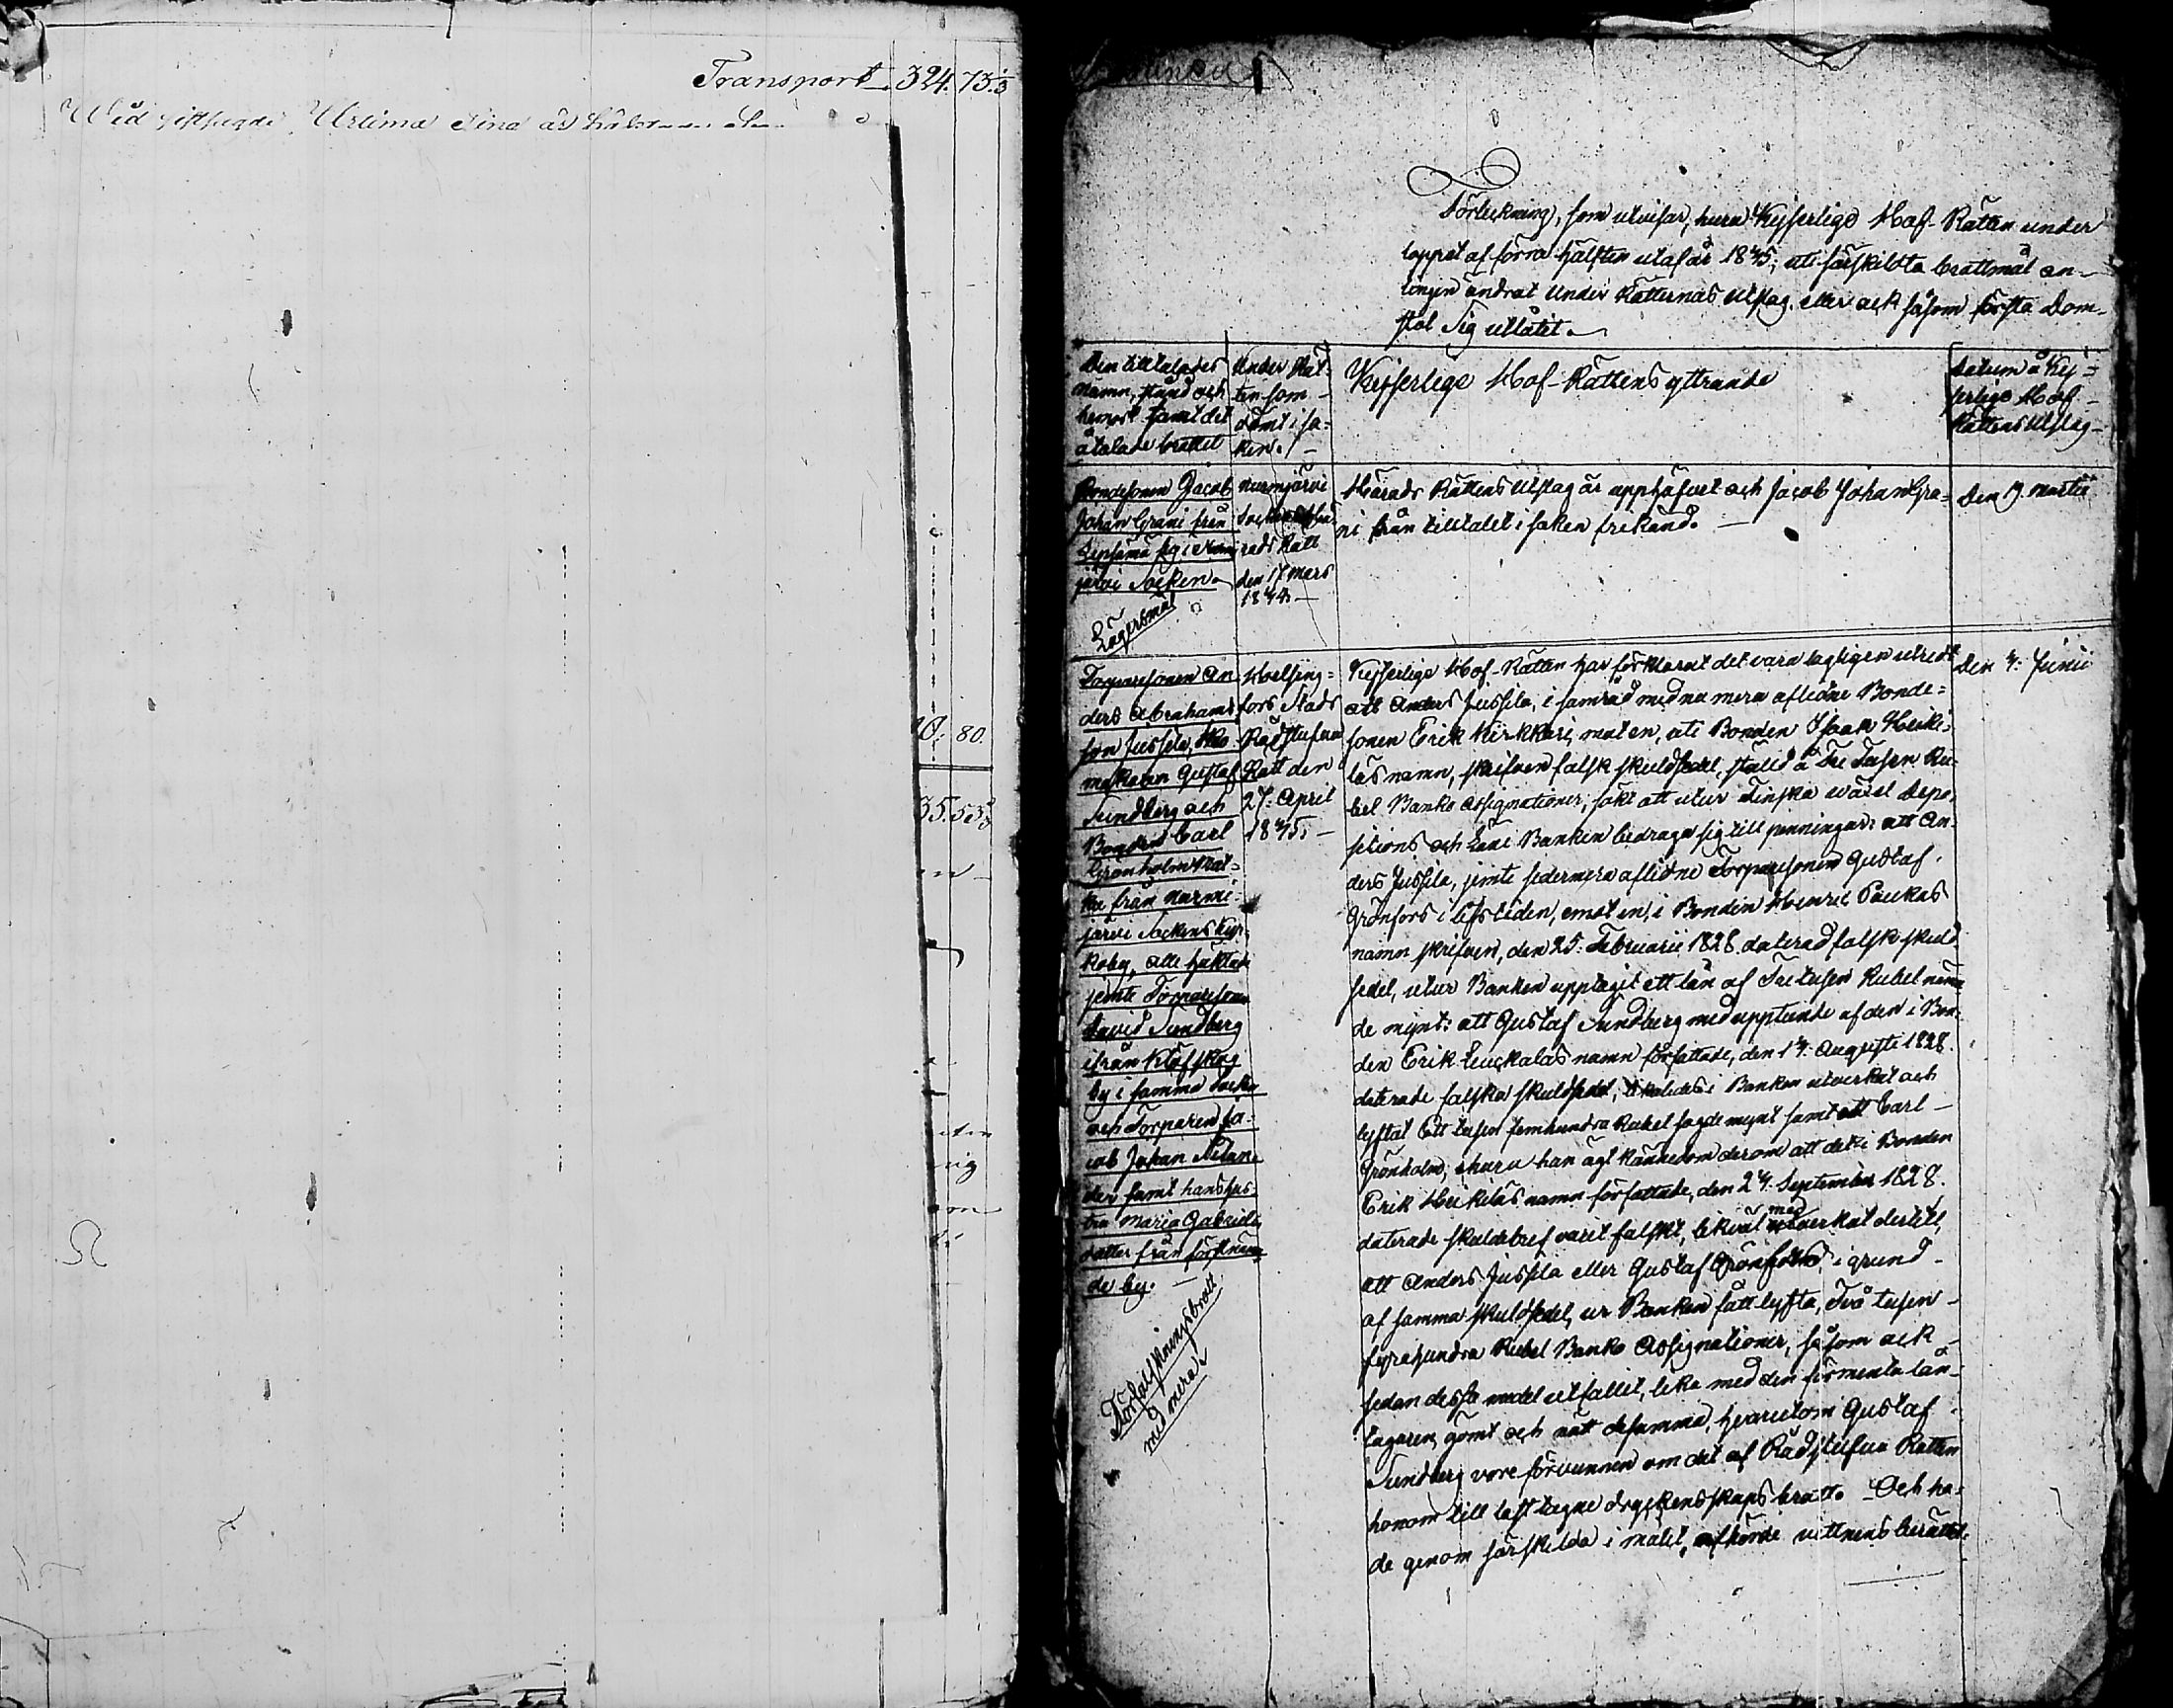 Transport 324. 73.
Wid
Ø: 80.
35. 53
Förteckning, som utvisar, huru Kejserlige Hof-Rätten under
loppet af förra hälften utaf år 1845, uti särskildta brottmål an-
tingen ändrat Under Rätternas Utslag, eller ock såsom första Dom-
stol Sig utlåtit.
Den tilltalades
namn, stånd och
hemort samt det
åtalade brottet
Under Rät-
ten som
dömt i sa-
ken.
Kejserlige Hof-Rättens yttrande
Datum å Kej-
serlige Hof-
Rättens Utslag
Bondesonen Jacob
Johan Grani från
i Nurmi-
järvi Socken.
Lägersmål
Nurmijärvi
Sockens Hä-
rads Rätt
den 17 Mars
1844
Härads Rättens Utslag är upphäfvet och Jacob Johan Gra-
ni från tilltalet i saken frikänd.
Den 19 Martii
Torparesonen An-
ders Abrahams-
son Jussila, Sko-
makaren Gustaf
Sundberg och
Bonden Carl
Grönholm Mat-
ka från Nurmi-
järvi Sockens Kyr-
koby, alle häktade
jemte Torparesonen
David Sundberg
ifrån Klöfskog
by i samma Socken
och Torparen Ja-
cob Johan Nilan-
der samt hans hus-
tru Maria Gabriels-
dotter från förstnämn-
de by.
Förfalskningsbrott
med mera
Helsing-
fors Stads
Rådstufvu
Rätt den
27: April
1845.
Kejserlige Hof-Rätten har förklarat det vara lagligen utredt
att Anders Jussila, i samråd med nu mera aflidne Bonde-
sonen Erik Kirkkari, mot en, uti Bonden Isaak Heiki-
läs namn, skrifven falsk skuldsedel, ställd å Tre Tusen Ru-
bel Banko Assignationer, sökt att utur Finska Wäxel Depo-
sitions och Låne Banken bedraga sig till penningar: att An-
ders Jussila, jemte sedermera aflidne Torparesonen Gustaf
Grönfors i lifstiden, emot en, i Bonden Henric Paukas
namn skrifven, den 25: Februarii 1828 daterad falsk skuld-
sedel, utur Banken upptagit ett lån af Tretusen Rubel nämn-
de mynt: att Gustaf Sundberg med uppteende af den i Bon-
den Erik Leuckalas namn författade, den 14: Augusti 1828
daterade falska skuldsedel, likaledes i Banken utverkat och
lyftat Ett tusen femhundra Rubel sagde mynt samt att Carl
Grönholm, ehuru han ägt kännedom derom att det i Bonden
Erik Heikiläs namn författade, den 24: September 1828.
daterade skuldebref varit falskt, likväl medverkat dertill,
att Anders Jussila eller Gustaf Grönfors i grund
af samma skuldsedel, ur Banken fått lyfta, Två tusen
fyrahundra Rubel Banko Assignationer, såsom ock
sedan dessa medel utfallit, lika med den förmenta lån-
tagaren, gömt och nått desamma, hvarutom Gustaf
Sundberg vore förvunnen om det af Rådstufvu Rätten
honom till last lagde dryckenskaps brott. Och ha-
de genom särskilda i målet, afhörde vittnens berättel-
Den 4: Junii